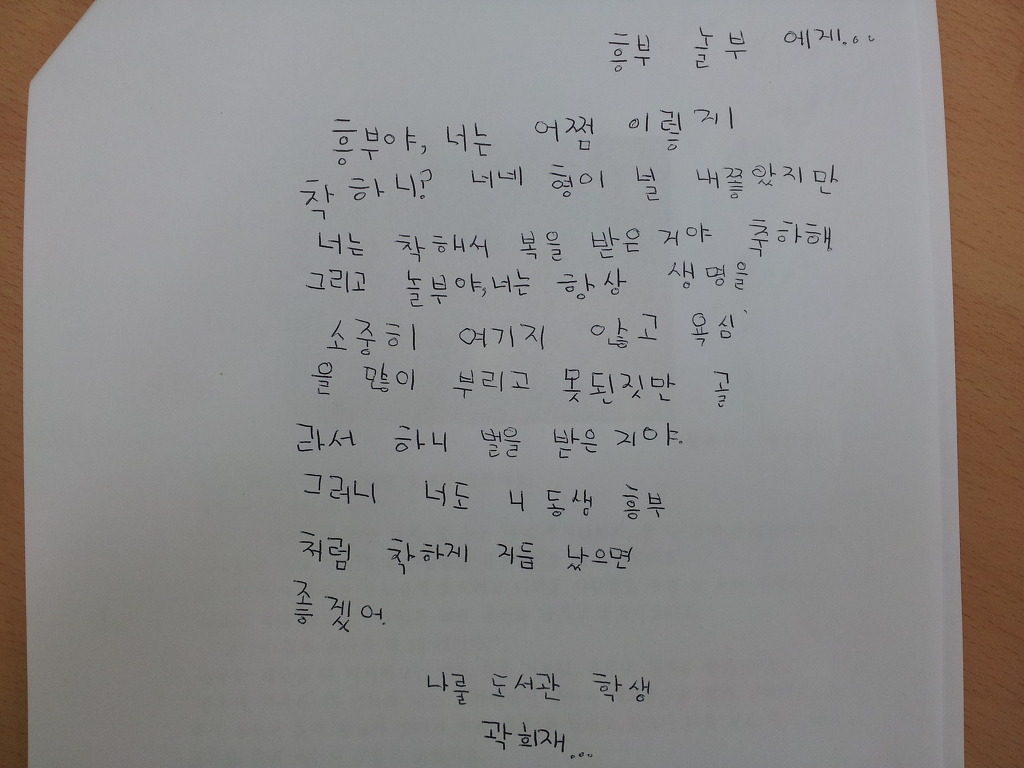 흥부 놀부 에게...
흥부야, 너는 어쩜 이렇게
착하니? 너네 형이 널 내쫓았지만
너는 착해서 복을 받은거야 축하해
그리고 놀부야, 너는 항상 생명을
소중히 여기지 않고 욕심
을 많이 부리고 못된짓만 골
라서 하니 벌을 받은 지야.
그러니 너도 니 동생 흥부
처럼 착하게 거듭 났으면
좋겠어.
나룰 도서관 학생
곽희재...